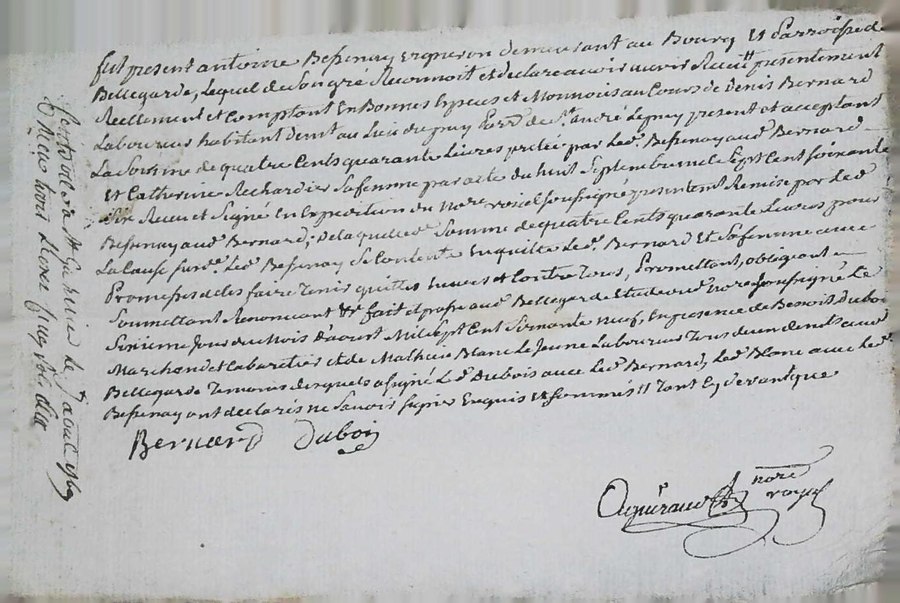 fut present antoine Bessenay vigneron demeurant au Bourg Et Parroisse de
Bellegarde, Lequel de son gré Reconnoit et declare avoir avoir Receu presentement
Reellement et Comptant En Bonnes Especes et Monnoies au Cours de Denis Bernard
Laboureur habitant demt au Lieu du puy Parr. de St. andré Le puy present et acceptant
La Somme de quatre Cents quarante Livres pretée par Led. Bessenay aud. Bernard
Et Catherine Rechardier Sa femme par acte du huit Septembre mil Sept Cent Soixante
Six Receu et Signé En Expedition du Nore. roial soussigné presentement Remise par led.
Bessenay aud. Bernard; de laquelle d. Somme de quatre Cents quarante Livres pour
La Cause surd. Led. Bessenay Se Contente En quitte Led. Bernard Et Sa femme avec
Promesse de les faire tenir quittes Envers et Contre tous, Promettant, obligeant
Soumettant Renonceant &c fait et passé aud. Bellegarde Etude dud. nore. soussigné Le
Sixieme Jour du Mois d'aoust Mil Sept Cent Soixante neuf, En presence de Benoit Dubois
Marchand et Cabartier et de Mathieu Blanc Le Jeune Laboureur Tous deux demts. aud.
Bellegarde Temoins desquels a signé Led. Dubois avec Led. Bernard, Led. Blanc avec led.
Bessenay ont declarés ne Savoir Signer Enquis et Sommés
Bernard Dubois
nore
royal